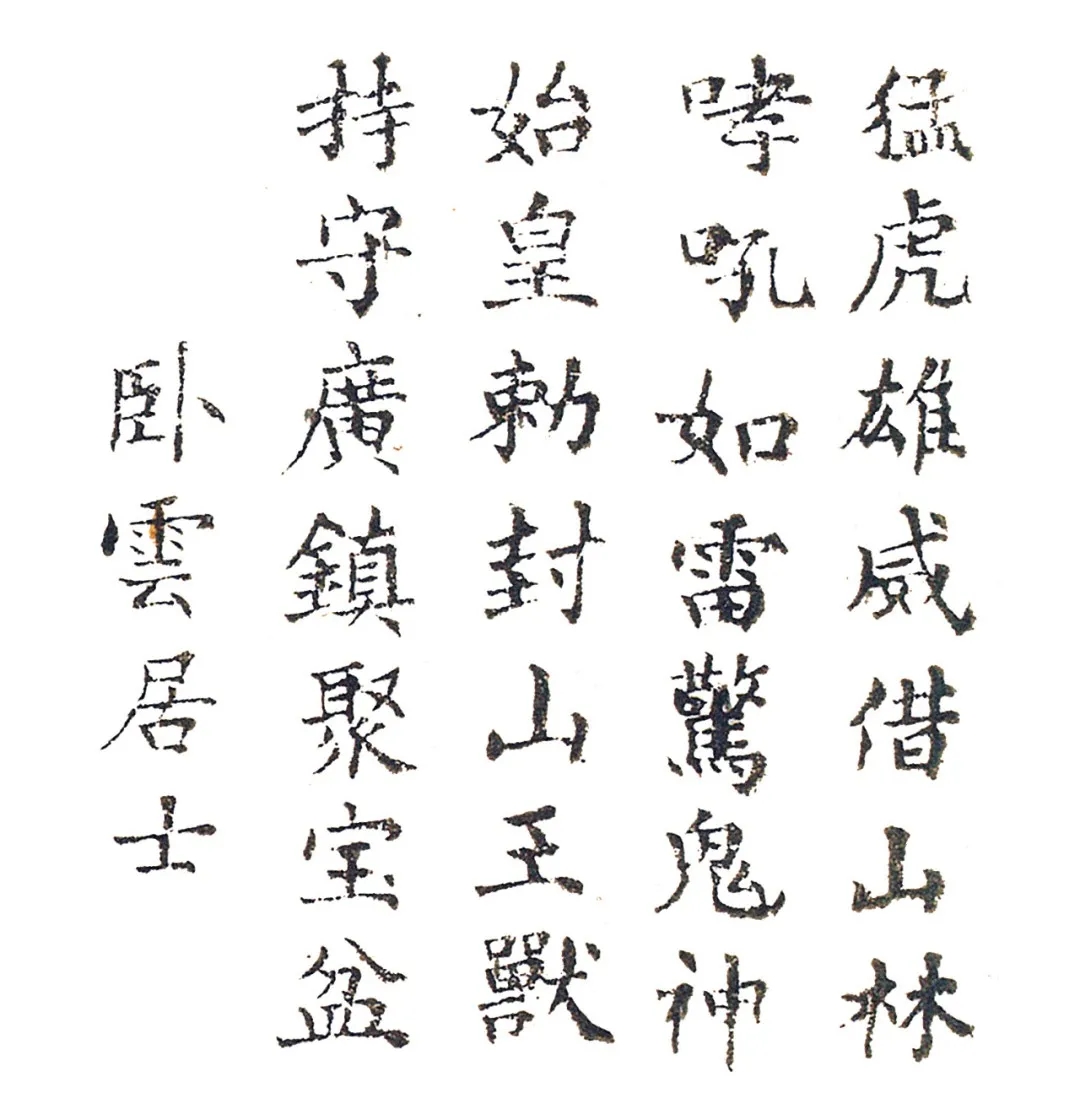 猛虎雄威借山林
哮吼如雷驚鬼神
始皇勅封山王獸
持守廣鎮聚宝盆
卧雲居士